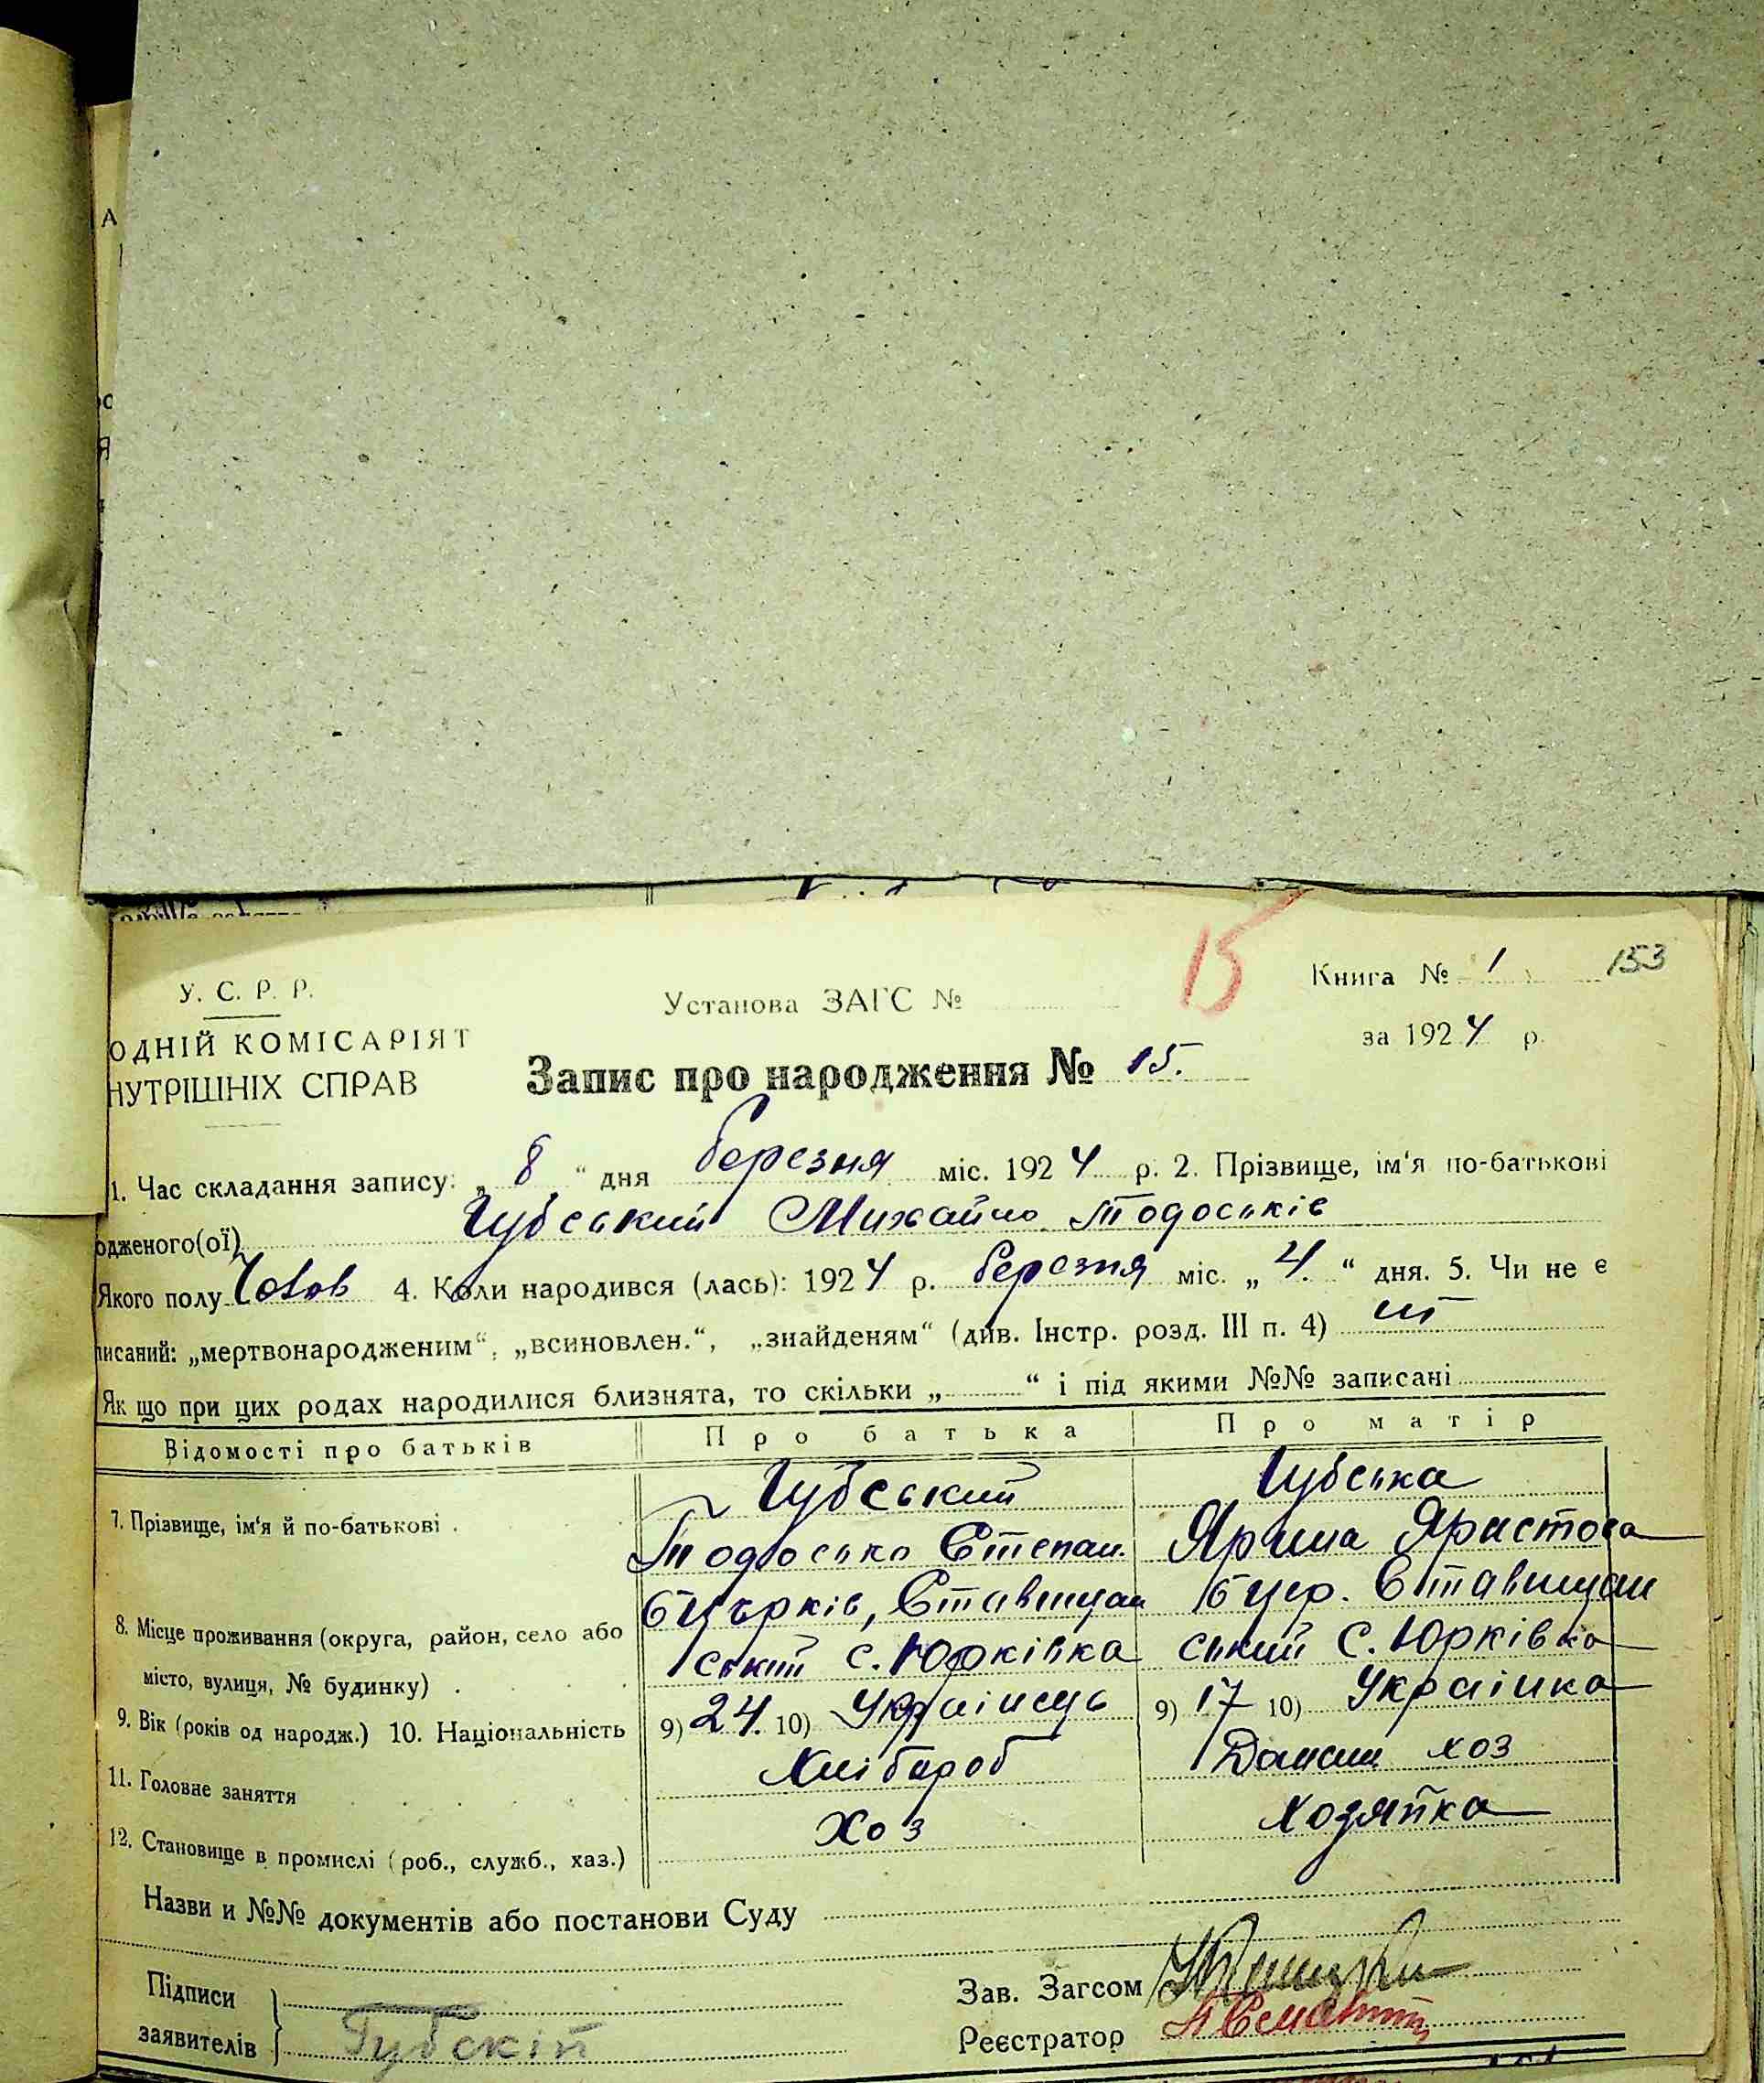 У. С. Р. Р.
ОДНІЙ КОМІСАРІЯТ
НУТРІШНІХ СПРАВ
Установа ЗАГС №
15
Книга № 1
153
за 1924 р.
Запис про народження № 15.
1. Час складання запису: „ 8 “ дня березня міс. 1924 р. 2. Прізвище, ім'я по-батькові
одженого(ої) Губський Михайло Тодоськів
Якого полу Чолов 4. Коли народився (лась): 1924 р. березня міс. „ 4. “ дня. 5. Чи не є
писаний: „мертвонародженим“, „всиновлен.“, „знайденям“ (див. Інстр. розд. III п. 4)
Як що при цих родах народилися близнята, то скільки „ “ і під якими №№ записані
Відомості про батьків Про батька Про матір
7. Прізвище, ім'я й по-батькові . Губський Губська
Тодосько Степан. Ярина Яристова
8. Місце проживання (округа, район, село або Бцърків, Ставищан Бцер. Ставищан
місто, вулиця, № будинку) . ський с. Юрківка ський с. Юрківка
9. Вік (років од народж.) 10. Національність 9) 24. 10) Українець 9) 17 10) Українка
11. Головне заняття Хлібороб Домаш хоз
12. Становище в промислі (роб., служб., хаз.) Хоз хозяйка
Назви и №№ документів або постанови Суду
Підписи
заявителів
Губскій
Зав. Загсом
Реєстратор